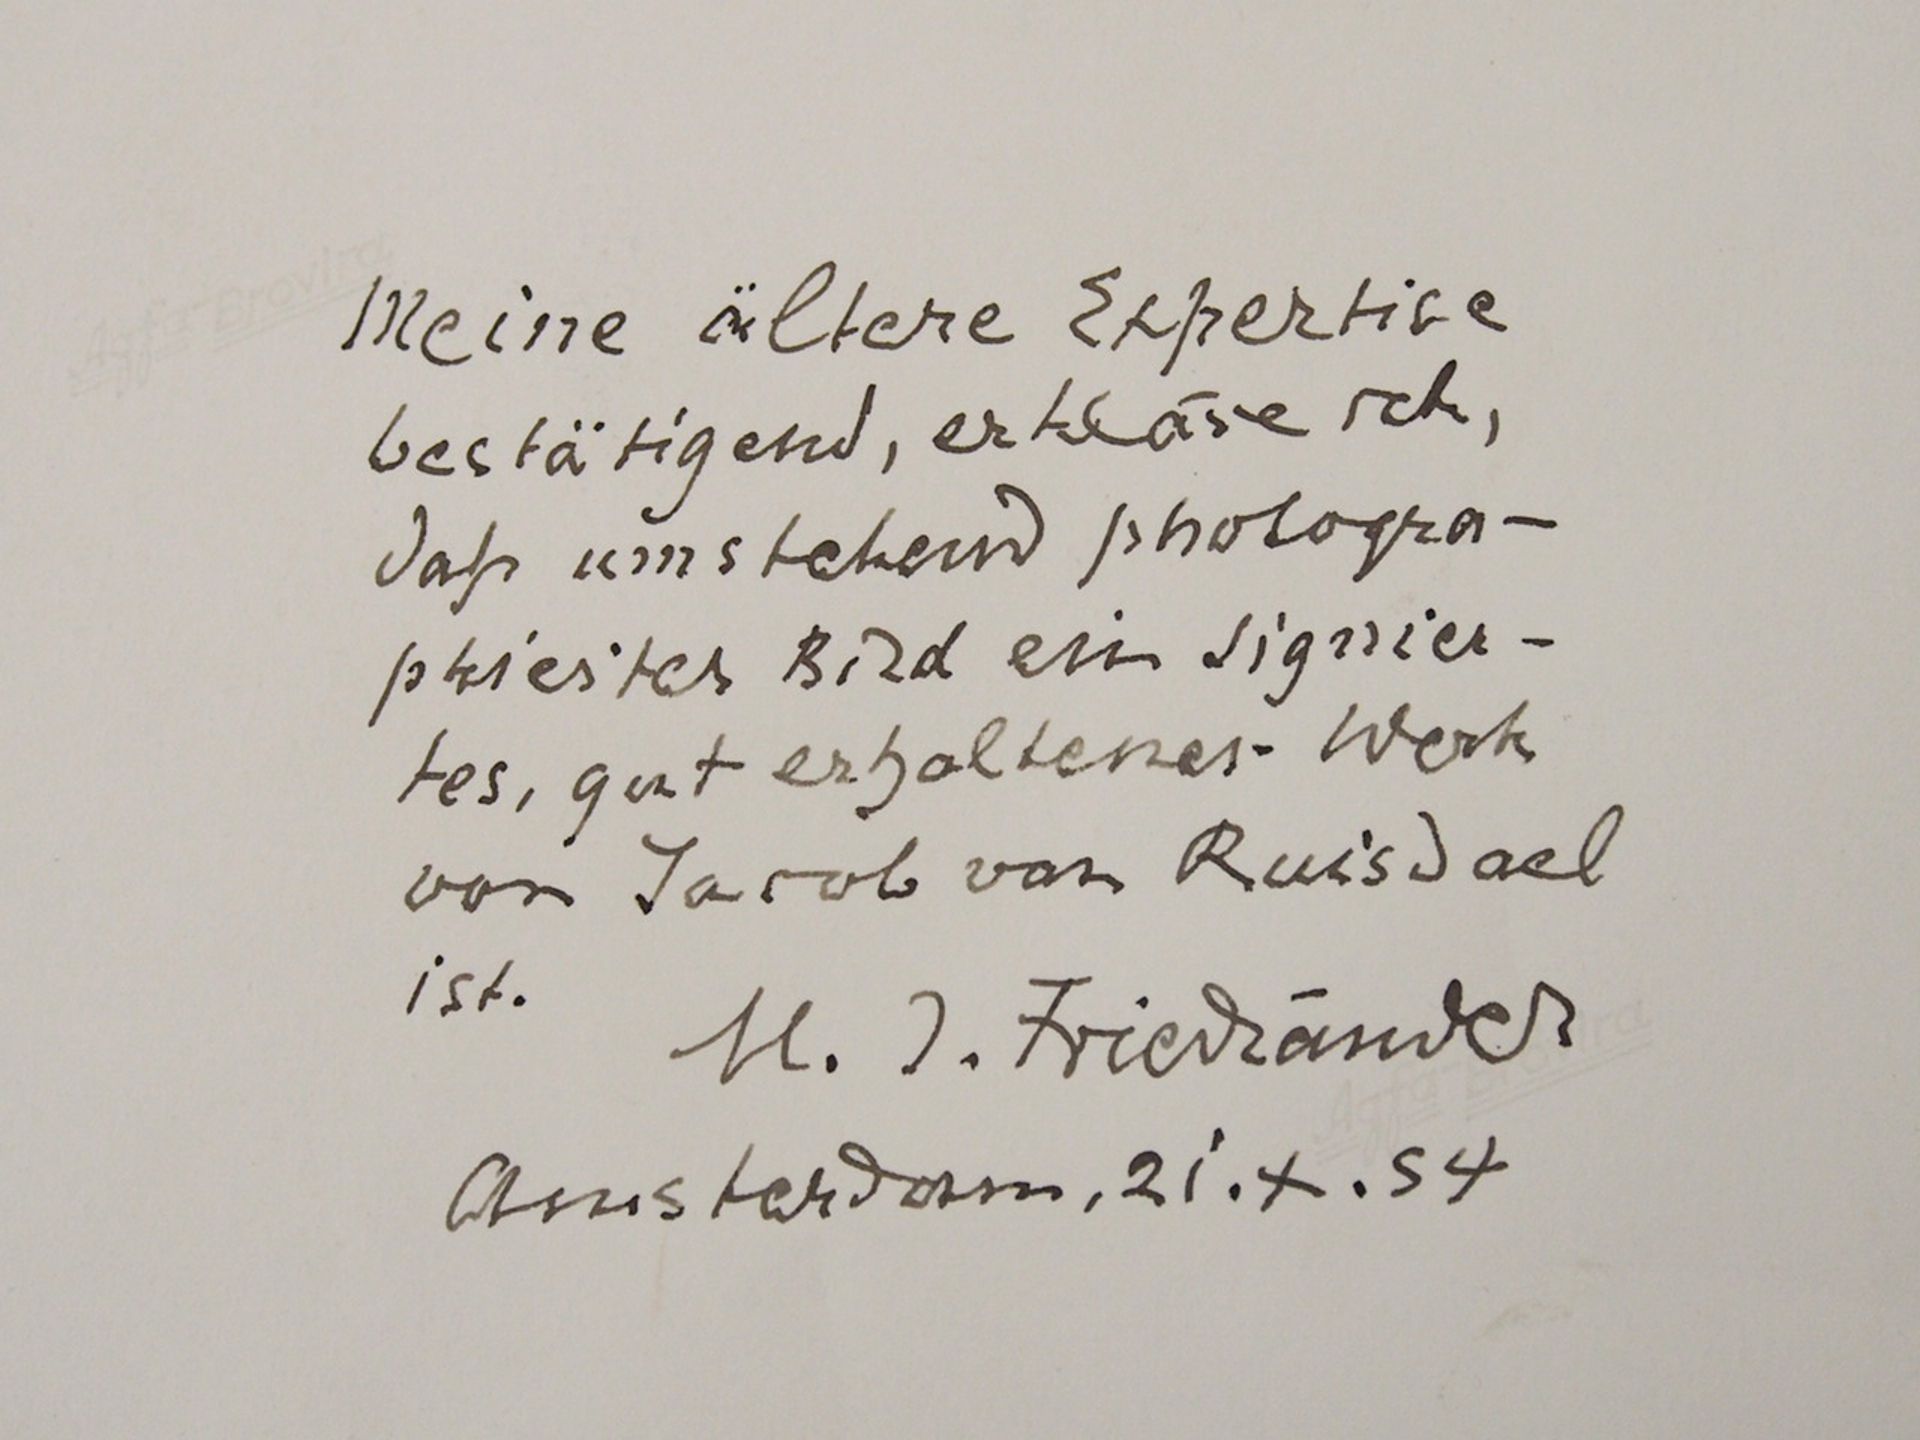 Meine ältere Expertise
bestätigend, erkläre ich,
daß umstehend photogra-
phiertes Bild ein signier-
tes, gut erhaltenes Werk
von Jacob van Ruisdael
ist.
M. J. Friedländer
Amsterdam, 21.X.54
Agfa-Brovira
Agfa-Brovira